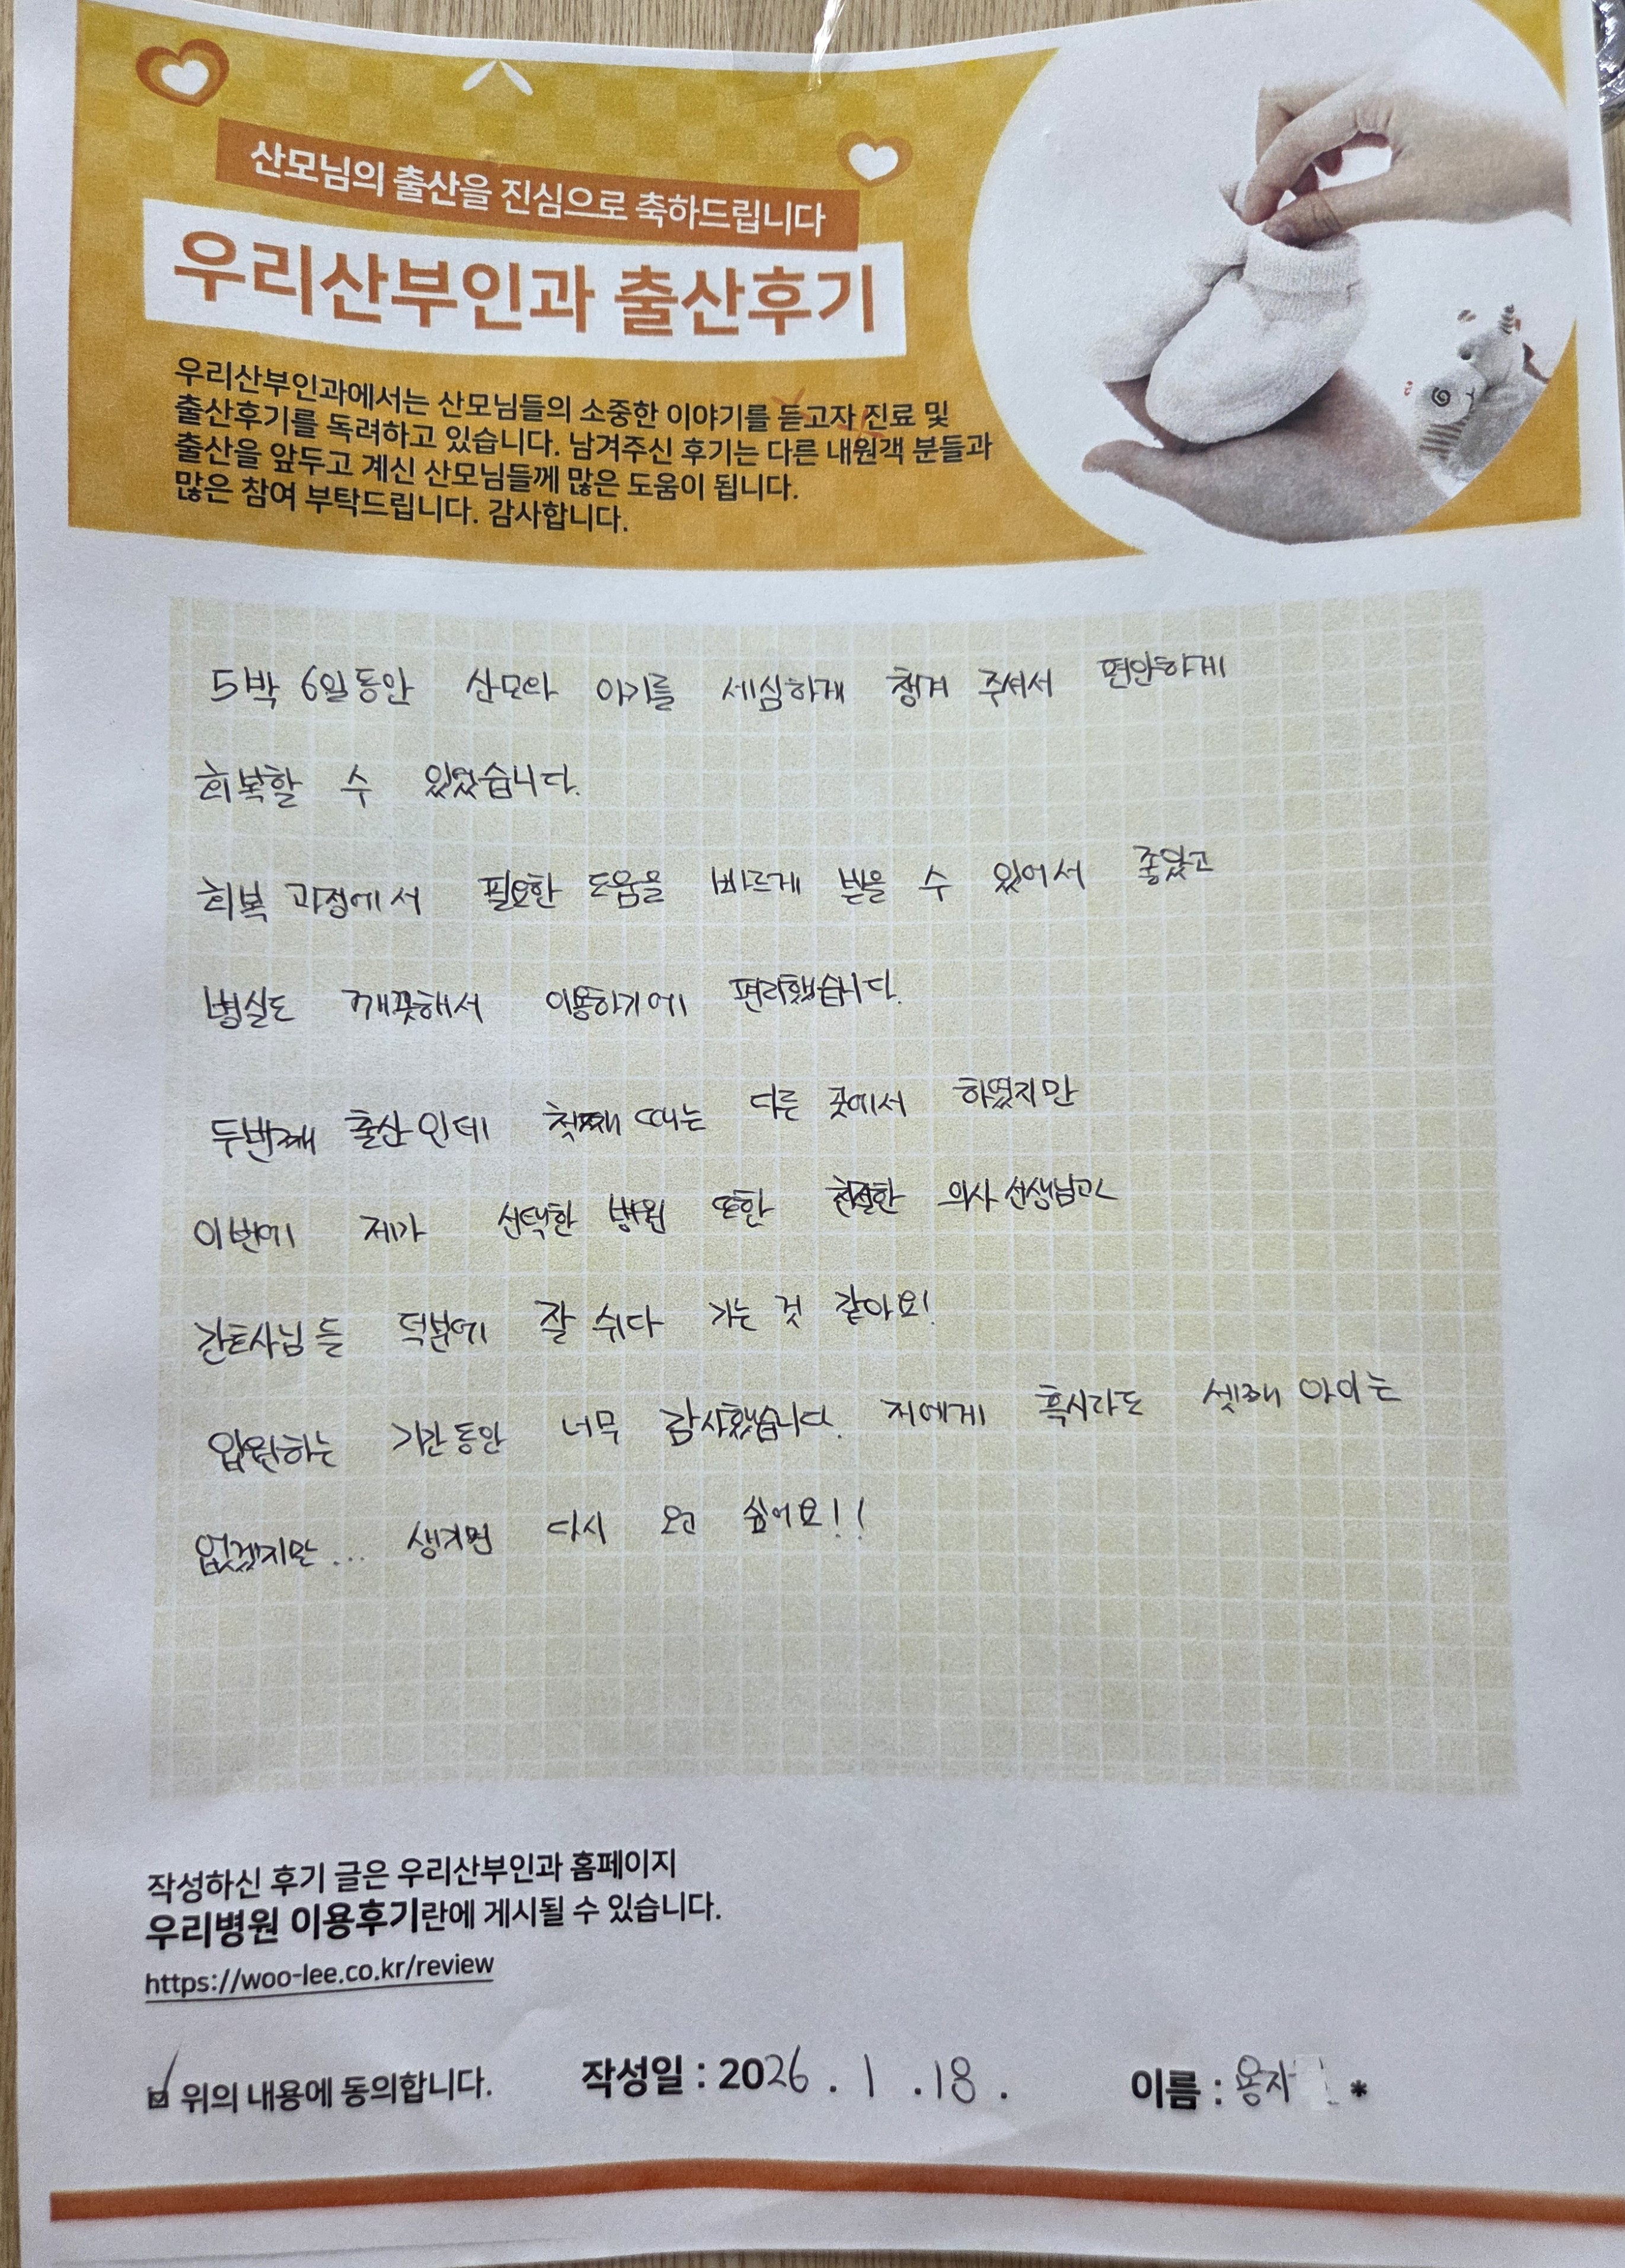 산모님의 출산을 진심으로 축하드립니다
우리산부인과 출산후기
우리산부인과에서는 산모님들의 소중한 이야기를 듣고자 진료 및
출산후기를 독려하고 있습니다. 남겨주신 후기는 다른 내원객 분들과
출산을 앞두고 계신 산모님들께 많은 도움이 됩니다.
많은 참여 부탁드립니다. 감사합니다.
5박 6일동안 산모와 아기를 세심하게 챙겨 주셔서 편안하게
회복할 수 있었습니다.
회복 과정에서 필요한 도움을 빠르게 받을 수 있어서 좋았고
병실도 깨끗해서 이용하기에 편리했습니다.
두번째 출산인데 첫째 때는 다른 곳에서 하였지만
이번에 제가 선택한 병원 또한 친절한 의사 선생님과
간호사님들 덕분에 잘 쉬다 가는 것 같아요!
입원하는 기간동안 너무 감사했습니다. 저에게 혹시라도 셋째 아이는
없겠지만... 생기면 다시 오고 싶어요!!
작성하신 후기 글은 우리산부인과 홈페이지
우리병원 이용후기란에 게시될 수 있습니다.
https://woo-lee.co.kr/review
위의 내용에 동의합니다. 작성일 : 2026.1.18. 이름 : 용자 *